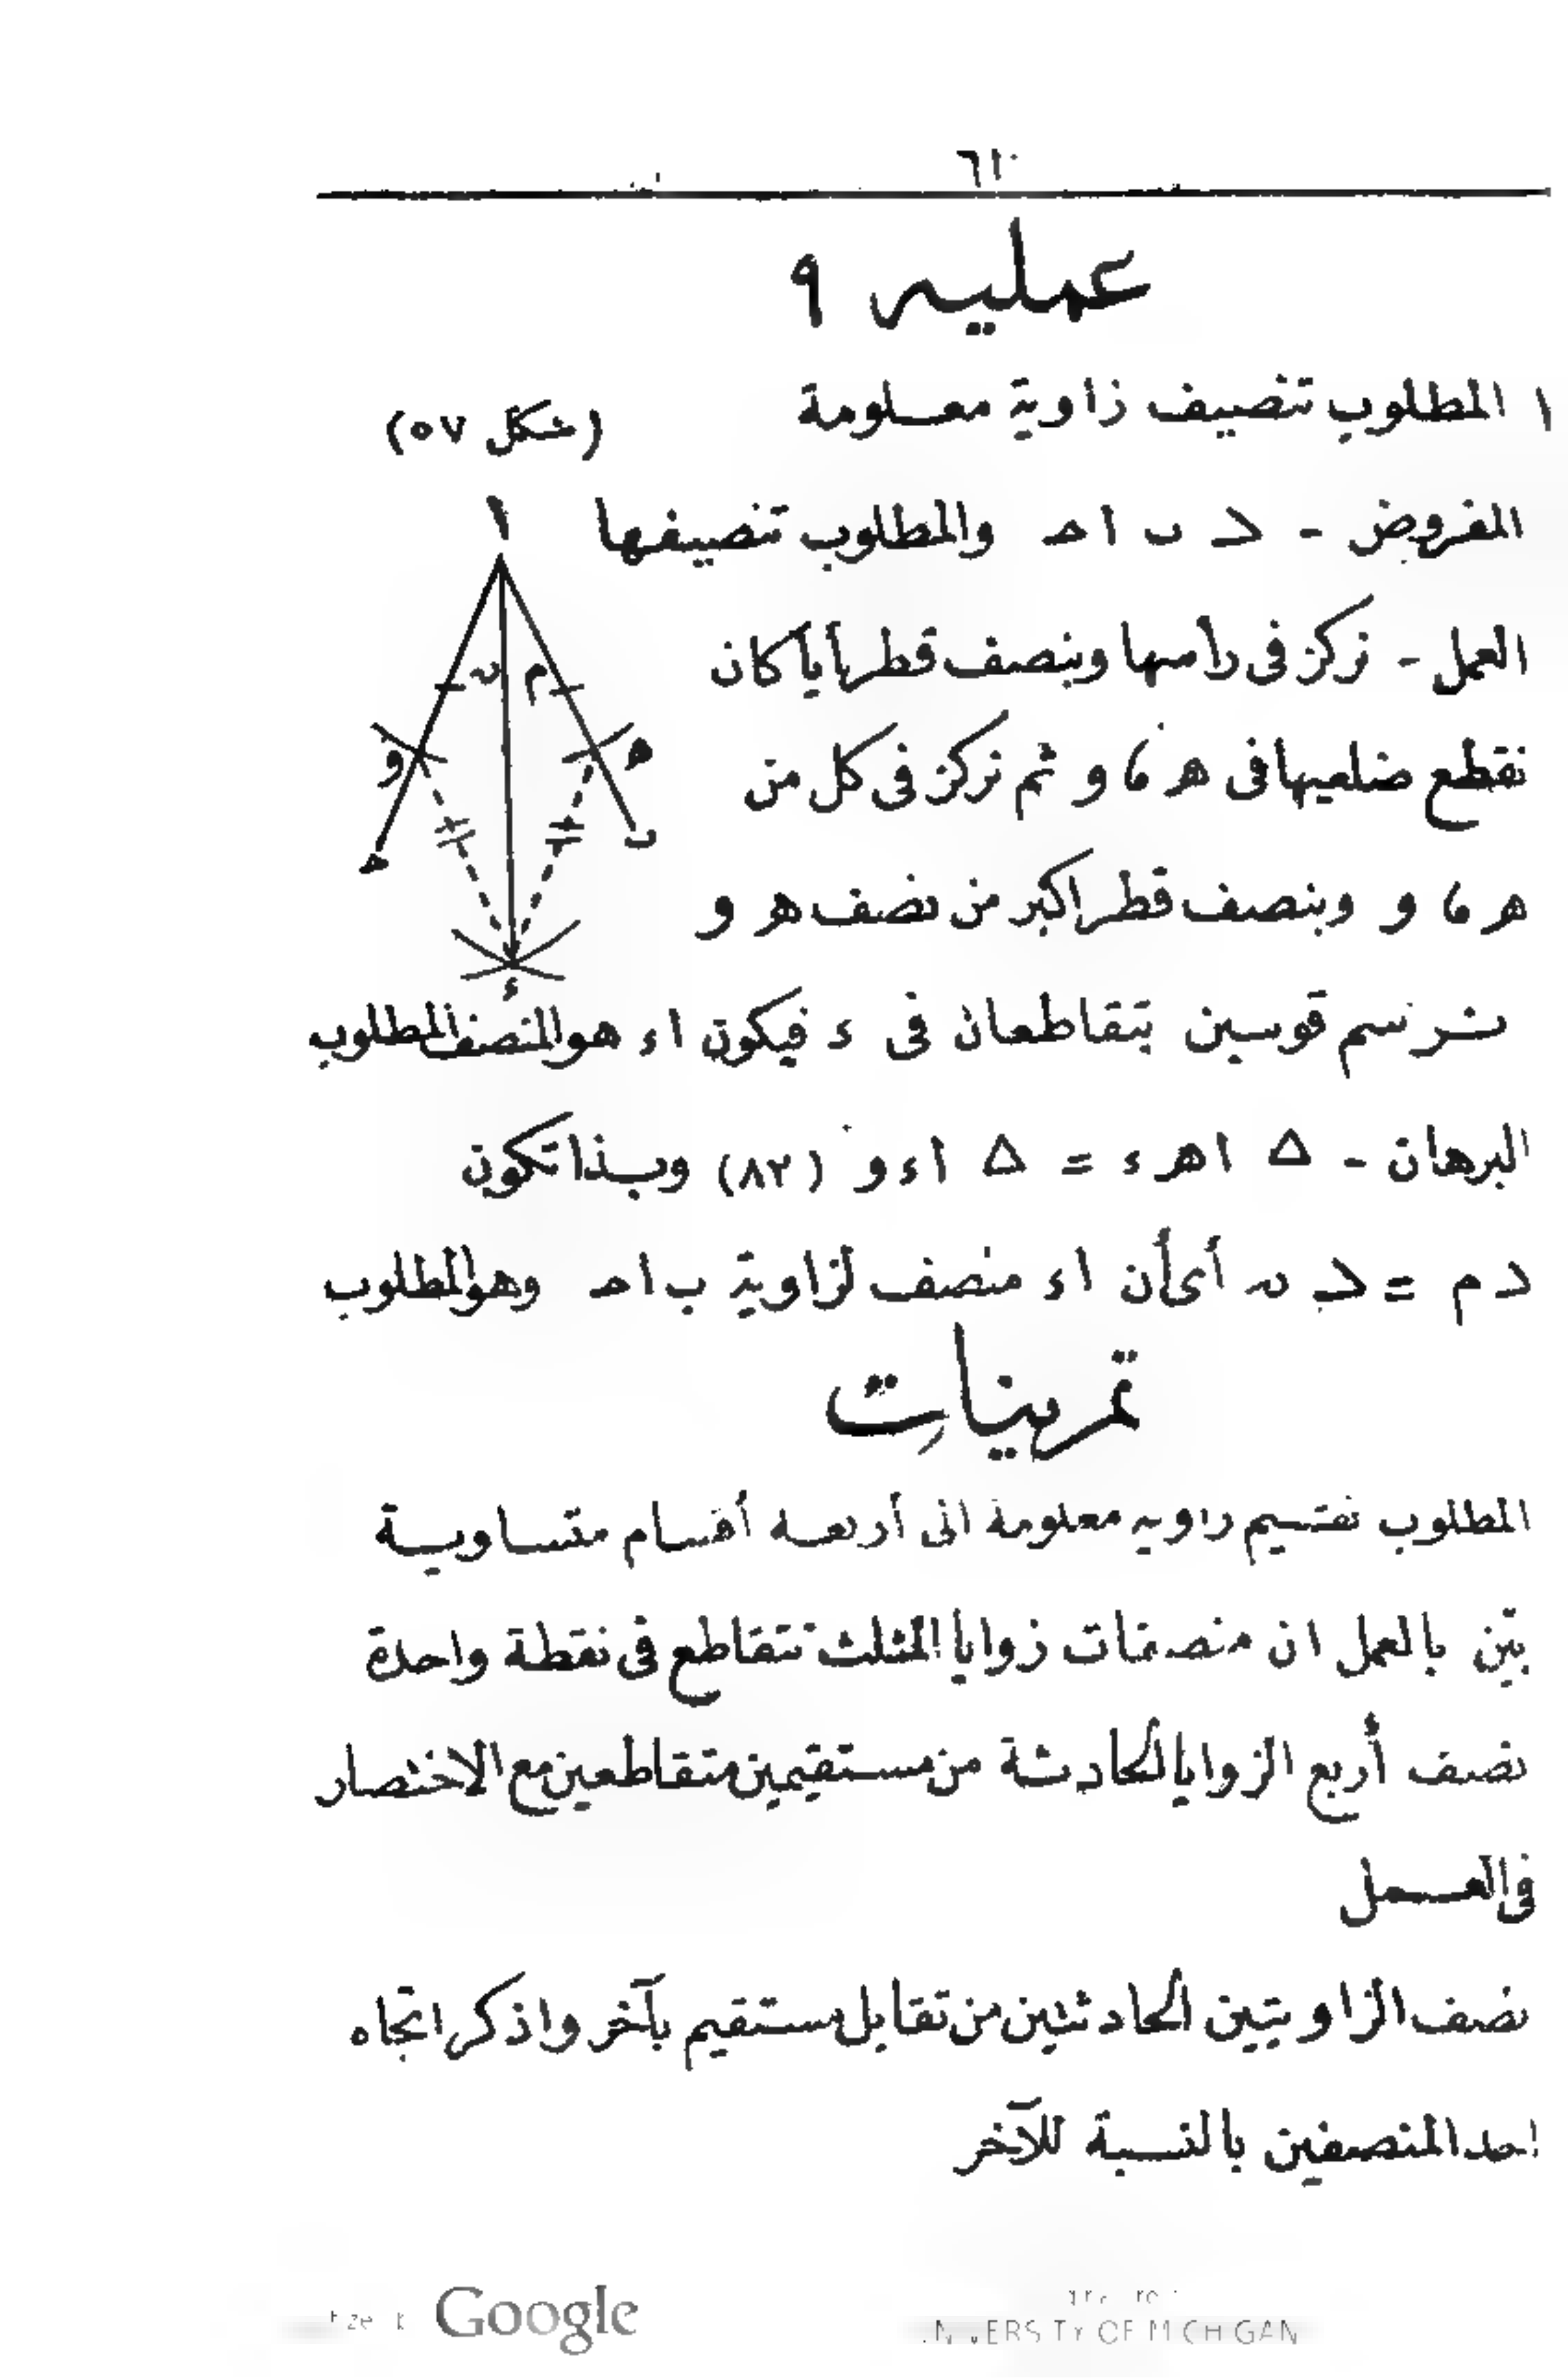 ٦١
عمليه ٩
١ المطلوب تنصيف زاوية معلومة
(شكل ٥٧)
المفروض - > ب ا ح والمطلوب تنصيفها
العمل - نركز فى رأسها وبنصف قطر أيا كان
نقطع ضلعيها فى ه ، و ثم نركز فى كل من
ه ، و وبنصف قطر اكبر من نصف ه و
نرسم قوسين يتقاطعان فى ء فيكون ا ء هو المنصف المطلوب
البرهان - △ ا ه ء = △ ا ء و (٨٢) وبذا تكون
> م = > ن أى أن ا ء منصف لزاوية ب ا ح وهو المطلوب
ا
م
ن
ه
و
ب
ح
ء
تمرينات
المطلوب تقسيم زاويه معلومة الى أربعه أقسام متساوية
بيّن بالعمل ان منصفات زوايا المثلث تتقاطع فى نقطة واحدة
نصف أربع الزوايا الحادثة من مستقيمين متقاطعين مع الاختصار
فى العمل
نصف الزاويتين الحادثتين من تقابل مستقيم بآخر واذكر اتجاه
احد المنصفين بالنسبة للآخر
Google
UNIVERSITY OF MICHIGAN